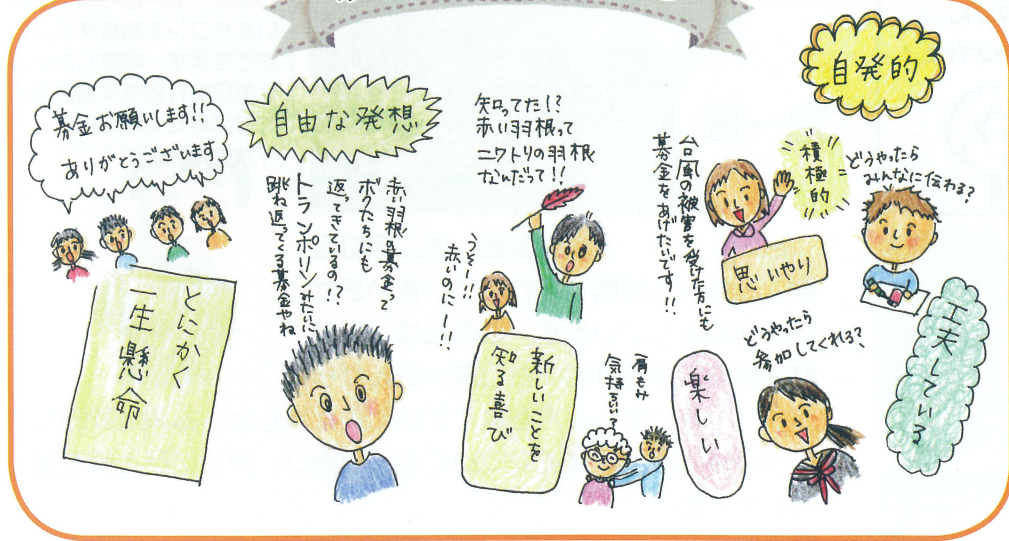 募金お願いします!!
ありがとうございます
とにかく
一生懸命
自由な発想
赤い羽根の募金って
ボクたちにも
返ってきているの!?
トランポリンみたいに
跳ね返ってくる募金やね
知ってた!?
赤い羽根って
ニワトリの羽根
なんだって!!
うっそー!!
赤いのにー!!
新しいことを
知る喜び
台風の被害を受けた方にも
募金をあげたいです!!
肩もみ
気持ちいい?
楽しい
自発的
積極的
思いやり
どうやったら
みんなに伝わる?
どうやったら
参加してくれる?
工夫している